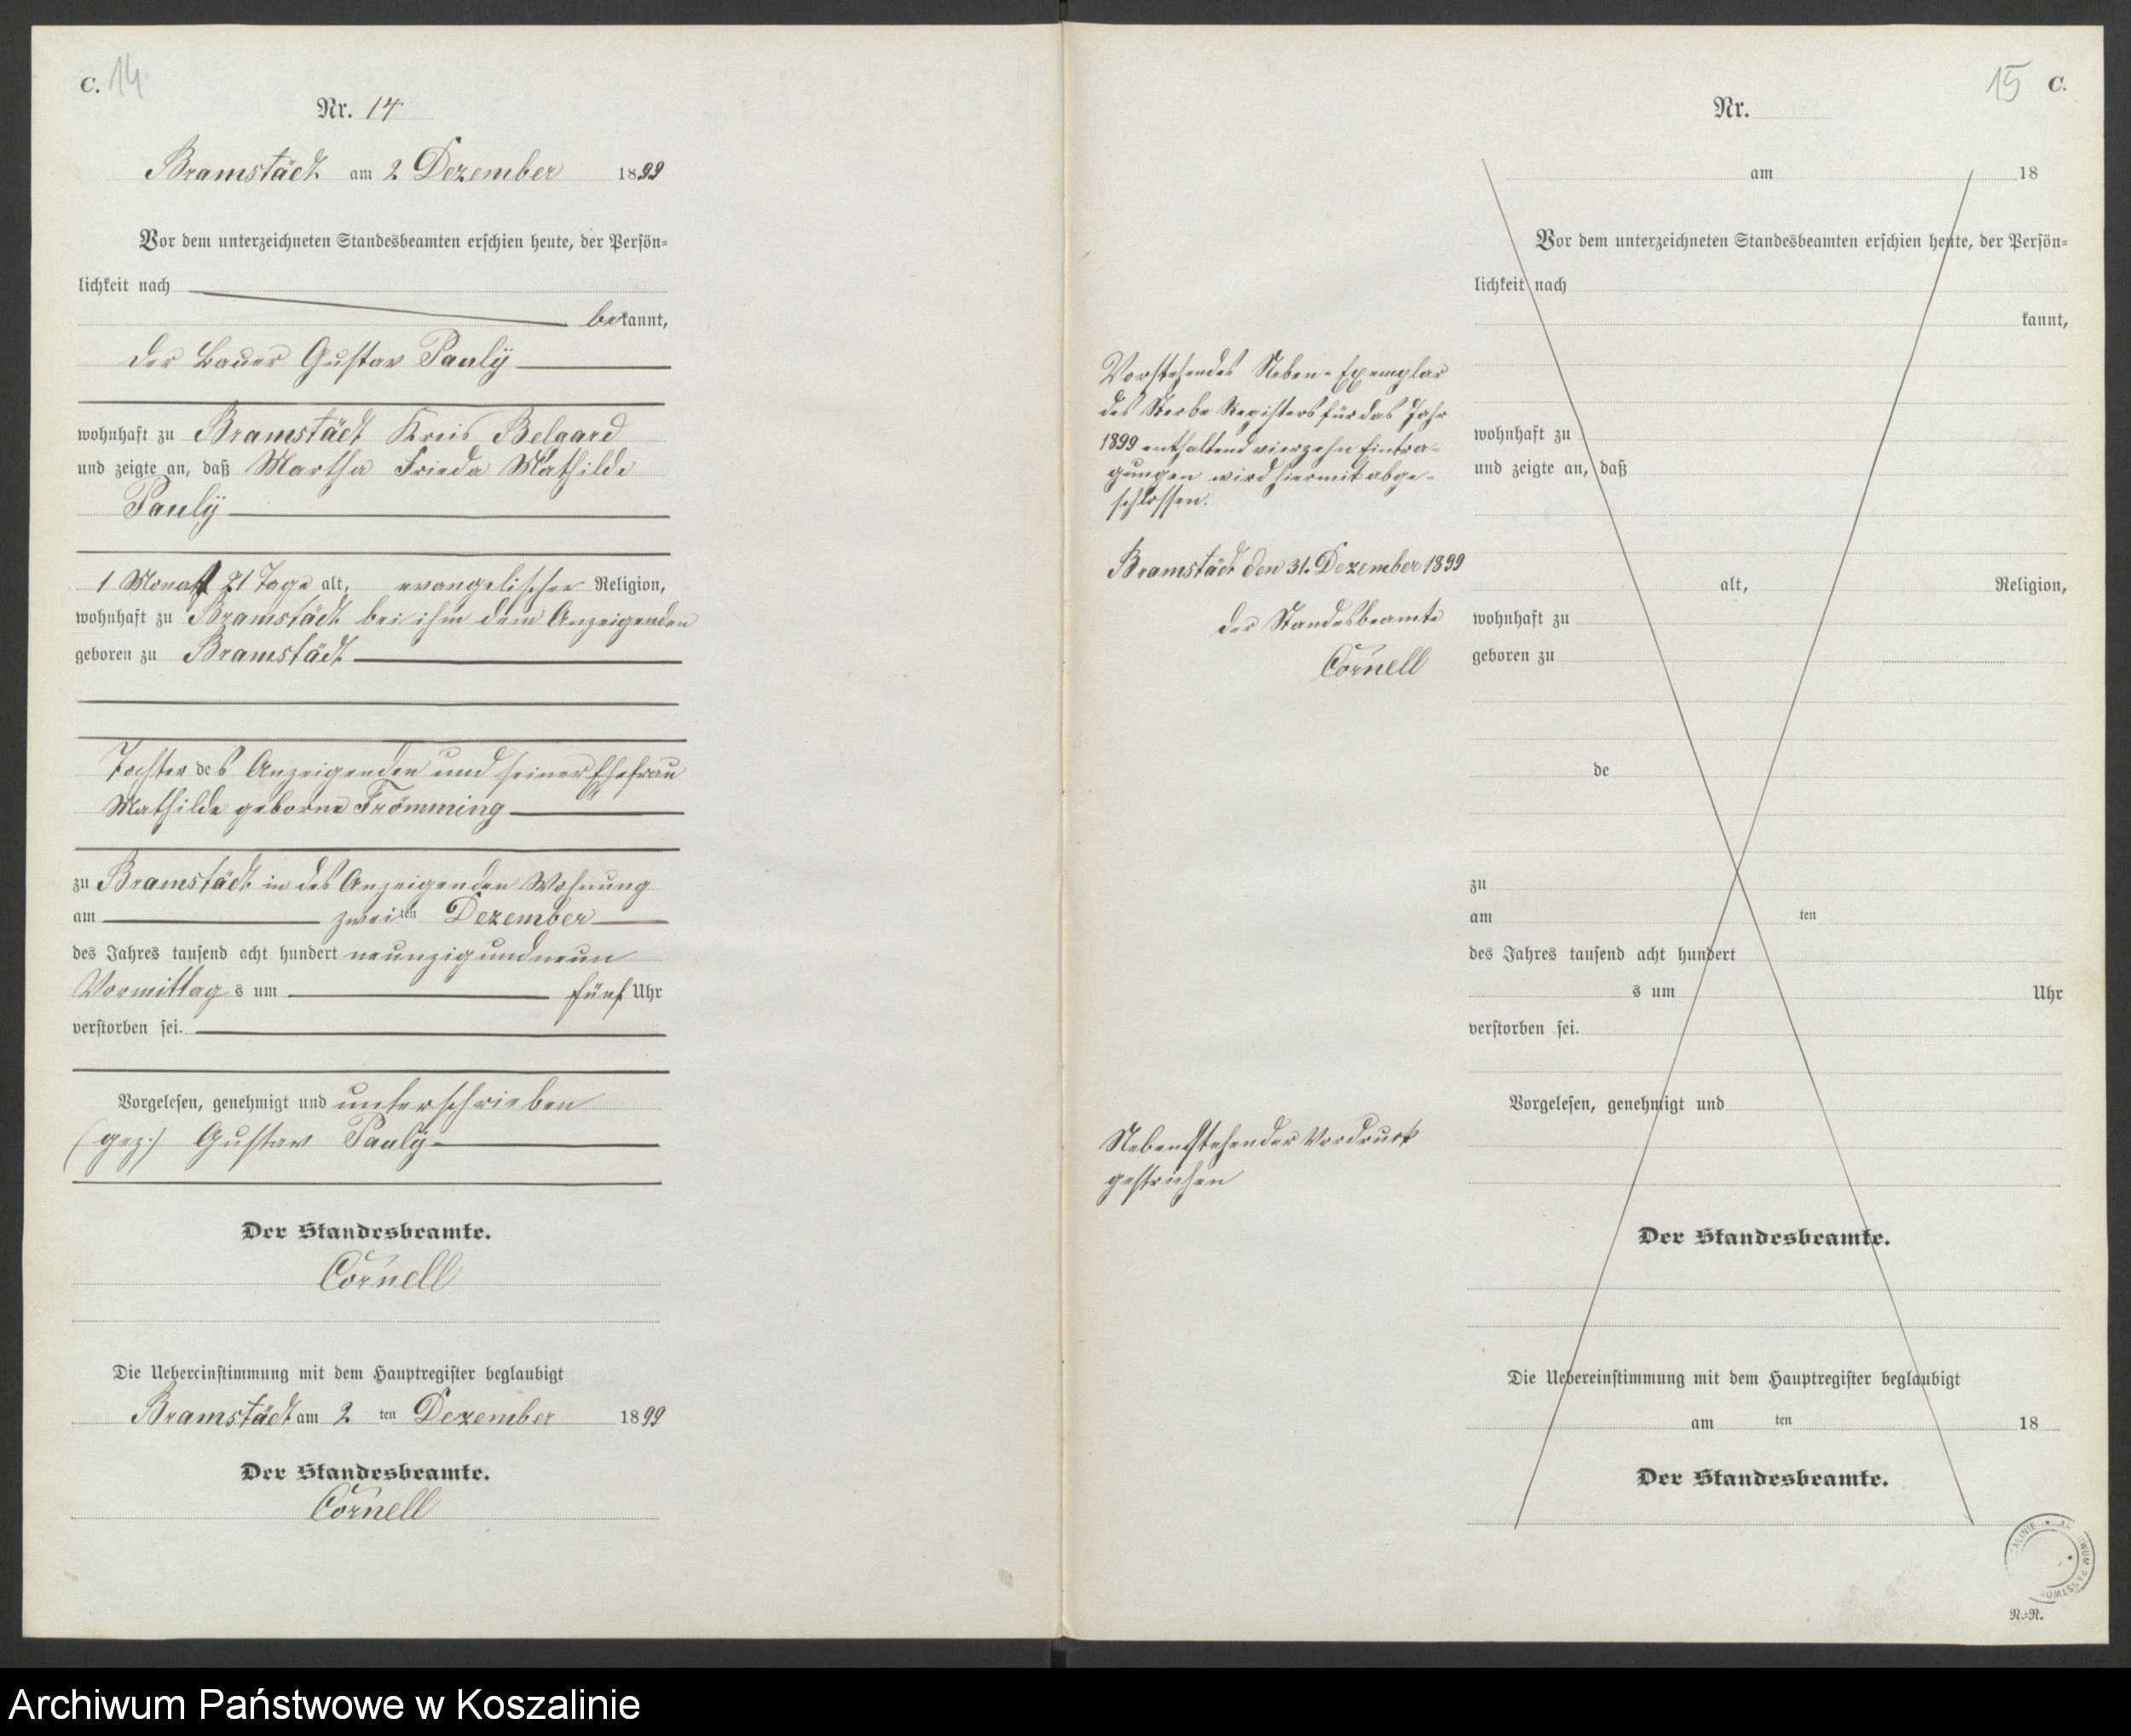 C. 14
Nr. 14
Bramstädt am 2 Dezember 1899
Vor dem unterzeichneten Standesbeamten erschien heute, der Persön-
lichkeit nach
bekannt,
der Bauer Gustav Pauly
wohnhaft zu Bramstädt Kreis Belgard
und zeigte an, daß Martha Frieda Mathilde
Pauly
1 Monat 21 Tage alt, evangelischer Religion,
wohnhaft zu Bramstädt bei ihm dem Anzeigenden
geboren zu Bramstädt
Tochter des Anzeigenden und seiner Ehefrau
Mathilde geborne Frömming
zu Bramstädt in des Anzeigenden Wohnung
am zweiten Dezember
des Jahres tausend acht hundert neunzigundneun
Vormittags um fünf Uhr
verstorben sei.
Vorgelesen, genehmigt und unterschrieben
(gez:) Gustav Pauly
Der Standesbeamte.
Cornell
Die Uebereinstimmung mit dem Hauptregister beglaubigt
Bramstädt am 2 ten Dezember 1899
Der Standesbeamte.
Cornell
15 C.
Nr.
am 18
Vor dem unterzeichneten Standesbeamten erschien heute, der Persön-
lichkeit nach
kannt,
wohnhaft zu
und zeigte an, daß
alt, Religion,
wohnhaft zu
geboren zu
de
zu
am ten
des Jahres tausend acht hundert
s um Uhr
verstorben sei.
Vorgelesen, genehmigt und
Der Standesbeamte.
Die Uebereinstimmung mit dem Hauptregister beglaubigt
am ten 18
Der Standesbeamte.
Vorstehendes Neben-Exemplar
des Sterbe Registers für das Jahr
1899 enthaltend vierzehn Eintra-
gungen wird hiermit abge-
schlossen.
Bramstädt den 31. Dezember 1899
der Standesbeamte
Cornell
Nebenstehender Vordruck
gestrichen
N.=R.
Archiwum Państwowe w Koszalinie